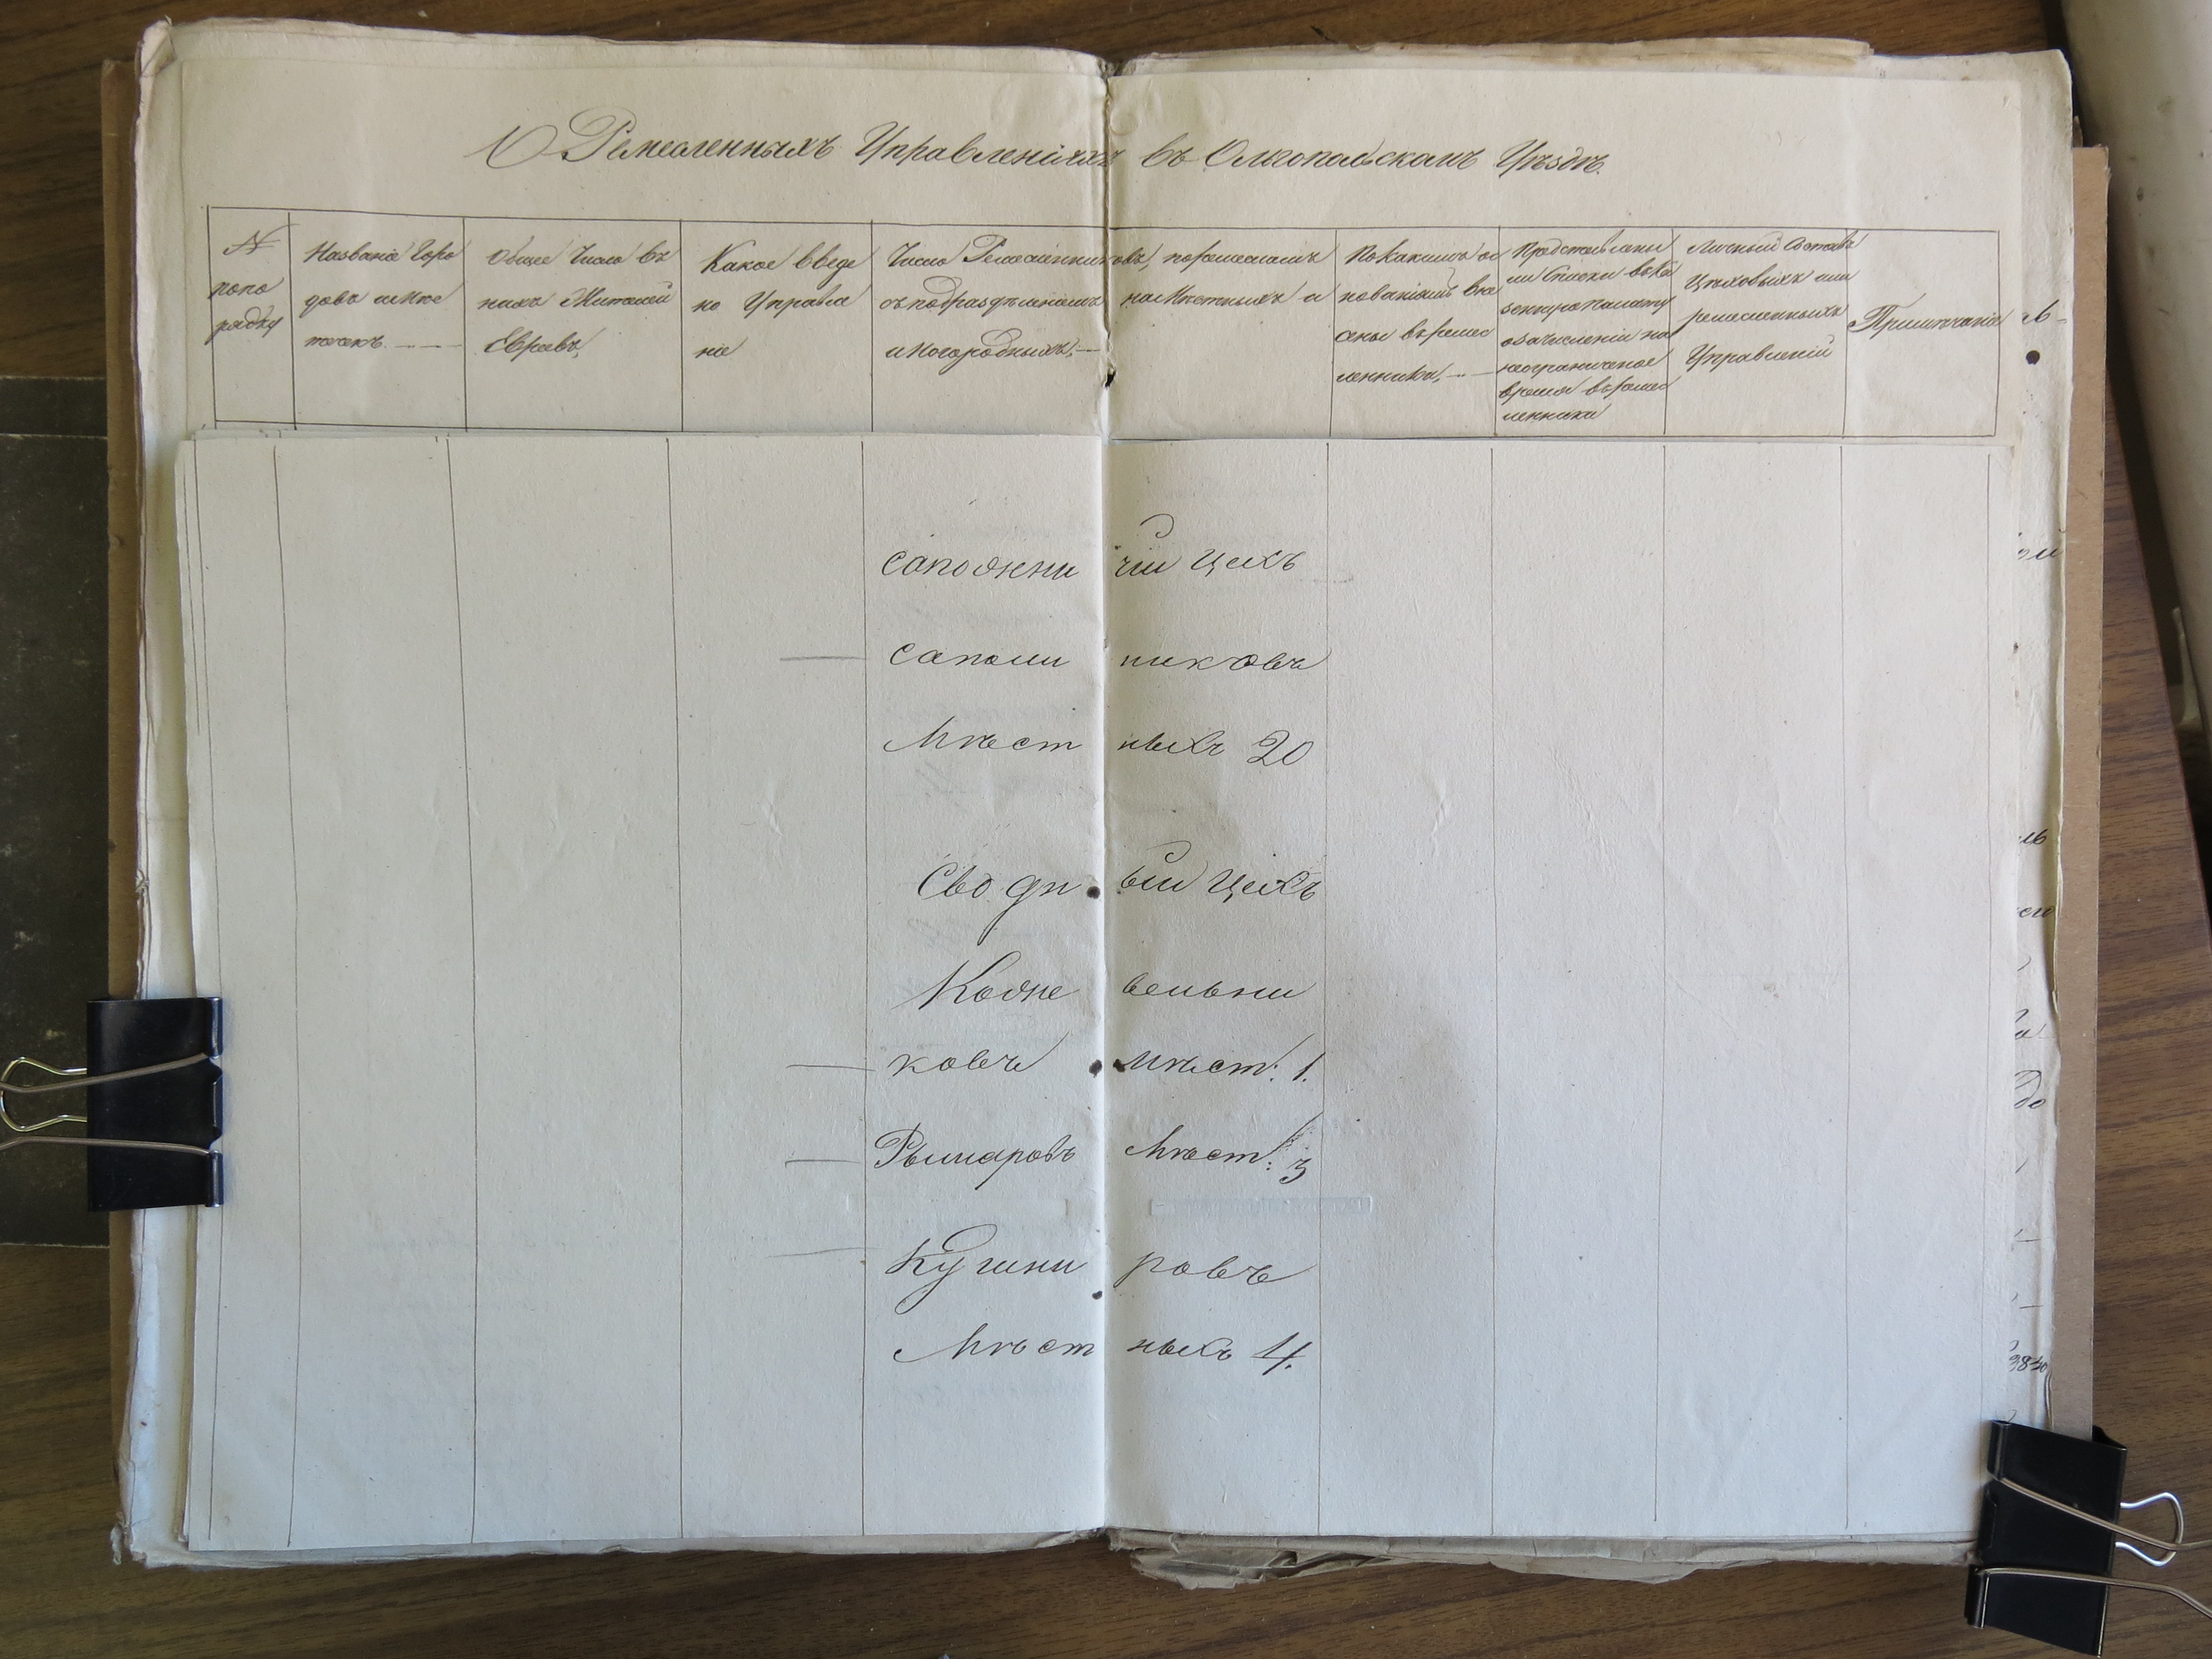 О Ремесленныхъ Управленіяхъ въ Ольгопольскомъ Уѣздѣ.
№
попо
рядку
Названіе Горо
довъ и мѣс
течекъ
Общее Число въ
нихъ Жителей
Евреевъ,
Какое введе
но Управле
ніе
Число Ремесленниковъ, поремесламъ
съ подраздѣленіемъ на Мѣстныхъ и
иногородныхъ,
Покакимъ ос
нованіямъ вне
сены въ ремес
ленники,
Представлены
ли Списки въ Ка
зенную Палату
о зачисленіи на
неограниченое
время въ ремес
ленники
Личный Составъ
Цѣховыхъ или
ремесленныхъ
Управленій
Примѣчаніе
сапожничій Цехъ
сапожниковъ
Мѣстныхъ 20
Сводный Цехъ
Кожевельни
ковъ мѣст: 1.
Рымаровъ Мѣст: 3
Кушнировъ
Мѣстныхъ 4.